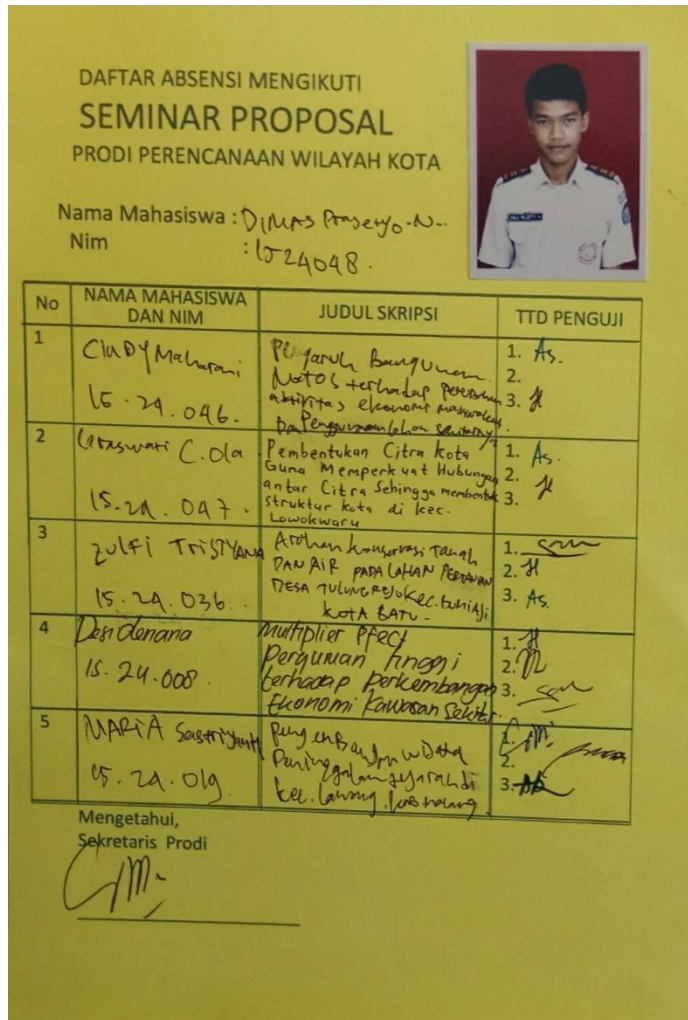 DAFTAR ABSENSI MENGIKUTI
SEMINAR PROPOSAL
PRODI PERENCANAAN WILAYAH KOTA
Nama Mahasiswa : DIMAS Prasetyo.N.
Nim : 1524048.
No NAMA MAHASISWA DAN NIM JUDUL SKRIPSI TTD PENGUJI
1 CINDY Maharani
15.24.046.
Pengaruh Bangunan
Matos terhadap
aktivitas ekonomi masyarakat
Dan Penggunaan lahan
1. As.
2.
3.
2 C. Ola
15.24.047.
Pembentukan Citra Kota
Guna Memperkuat Hubungan
antar Citra Sehingga membentuk
struktur kota di kec.
Lowokwaru
1. As.
2.
3.
3 Zulfi TRISTYANA
15.24.036.
Arahan konservasi Tanah
DAN AIR PADA LAHAN PERTANIAN
DESA TULUNGREJO Kec. Bumiaji
KOTA BATU.
1.
2.
3. As.
4 Desi denana
15.24.008.
Multiplier Efect
Perguruan tinggi
terhadap perkembangan
Ekonomi Kawasan Sekitar.
1.
2.
3.
5 MARIA Sastriyanti
15.24.019.
Pengembangan wisata
Peninggalan sejarah di
kec. Lawang. kab malang.
1.
2.
3.
Mengetahui,
Sekretaris Prodi